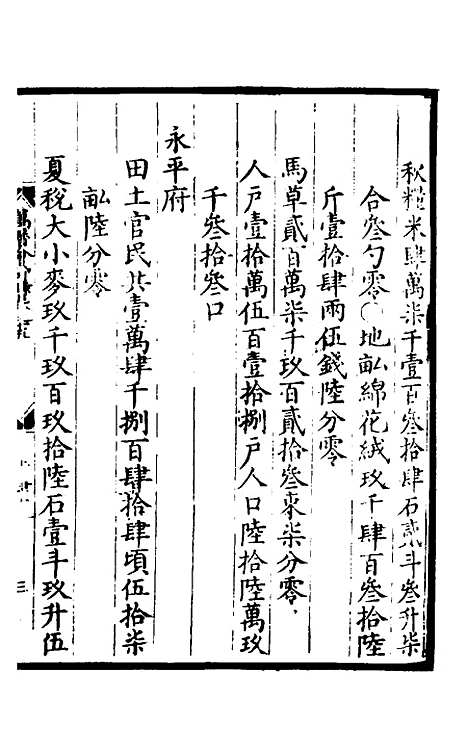 秋糧米肆萬柒千壹百叄拾肆石貳斗叄升柒
合叄勺零○地畝綿花絨玖千肆百叄拾陸
斤壹拾肆兩伍錢陸分零
馬草貳百萬柒千玖百貳拾叄束柒分零
人戶壹拾萬伍百壹拾捌戶人口陸拾陸萬玖
千叄拾叄口
永平府
田土官民共壹萬肆千捌百肆拾肆頃伍拾柒
畝陸分零
夏稅大小麥玖千玖百玖拾陸石壹斗玖升伍